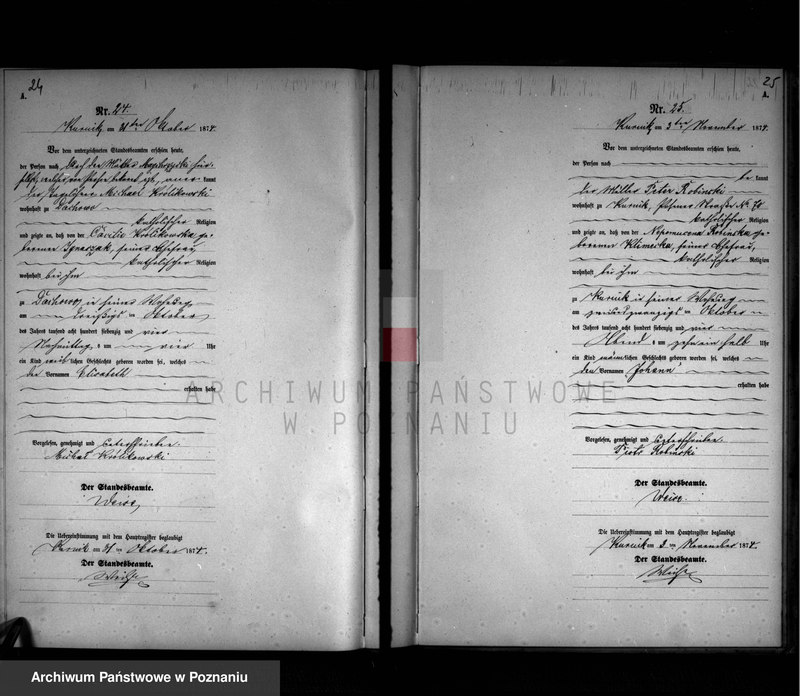 24
A.
Nr. 24.
Kurnik, am 31ten October 1874.
Vor dem unterzeichneten Standesbeamten erschien heute,
der Person nach
kannt
Michael Królikowski
wohnhaft zu Dachowo
katholischer Religion
und zeigte an, daß von der Cäcilie Królikowska ge-
borenen Ignaszak, seiner Ehefrau,
katholischer Religion
wohnhaft bei ihm
zu Dachowo, in seiner Wohnung
am dreißigsten October
des Jahres tausend acht hundert siebenzig und vier
Nachmittag um vier Uhr
ein Kind weiblichen Geschlechts geboren worden sei, welches
den Vornamen Elisabeth
erhalten habe
Vorgelesen, genehmigt und unterschrieben
Michał Królikowski
Der Standesbeamte.
Weise
Die Uebereinstimmung mit dem Hauptregister beglaubigt
Kurnik am 31ten October 1874.
Der Standesbeamte.
Weise
25
A.
Nr. 25.
Kurnik, am 3ten November 1874.
Vor dem unterzeichneten Standesbeamten erschien heute,
der Person nach
be kannt
der Müller Peter Robinski
wohnhaft zu Kurnik, Posener Strasse No 70
katholischer Religion
und zeigte an, daß von der Nepomucena Robinska ge-
borenen Klimecka, seiner Ehefrau,
katholischer Religion
wohnhaft bei ihm
zu Kurnik in seiner Wohnung
am October
des Jahres tausend acht hundert siebenzig und vier
Abend um zehn ein halb Uhr
ein Kind männlichen Geschlechts geboren worden sei, welches
den Vornamen "Johann"
erhalten habe
Vorgelesen, genehmigt und unterschrieben
Piotr Robinski
Der Standesbeamte.
Weise.
Die Uebereinstimmung mit dem Hauptregister beglaubigt
Kurnik am 3ten November 1874.
Der Standesbeamte.
Weise
ARCHIWUM PAŃSTWOWE
W POZNANIU
Archiwum Państwowe w Poznaniu